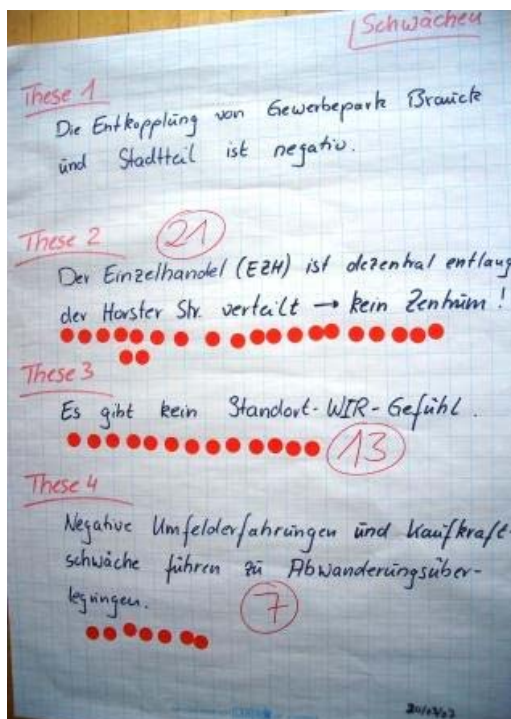 Schwächen
These 1
Die Entkopplung von Gewerbepark Brauck
und Stadtteil ist negativ.
These 2
21
Der Einzelhandel (EZH) ist dezentral entlang
der Horster Str. verteilt → kein Zentrum!
These 3
Es gibt kein Standort-WIR-Gefühl.
13
These 4
Negative Umfelderfahrungen und Kaufkraft-
schwäche führen zu Abwanderungsüber-
legungen.
7